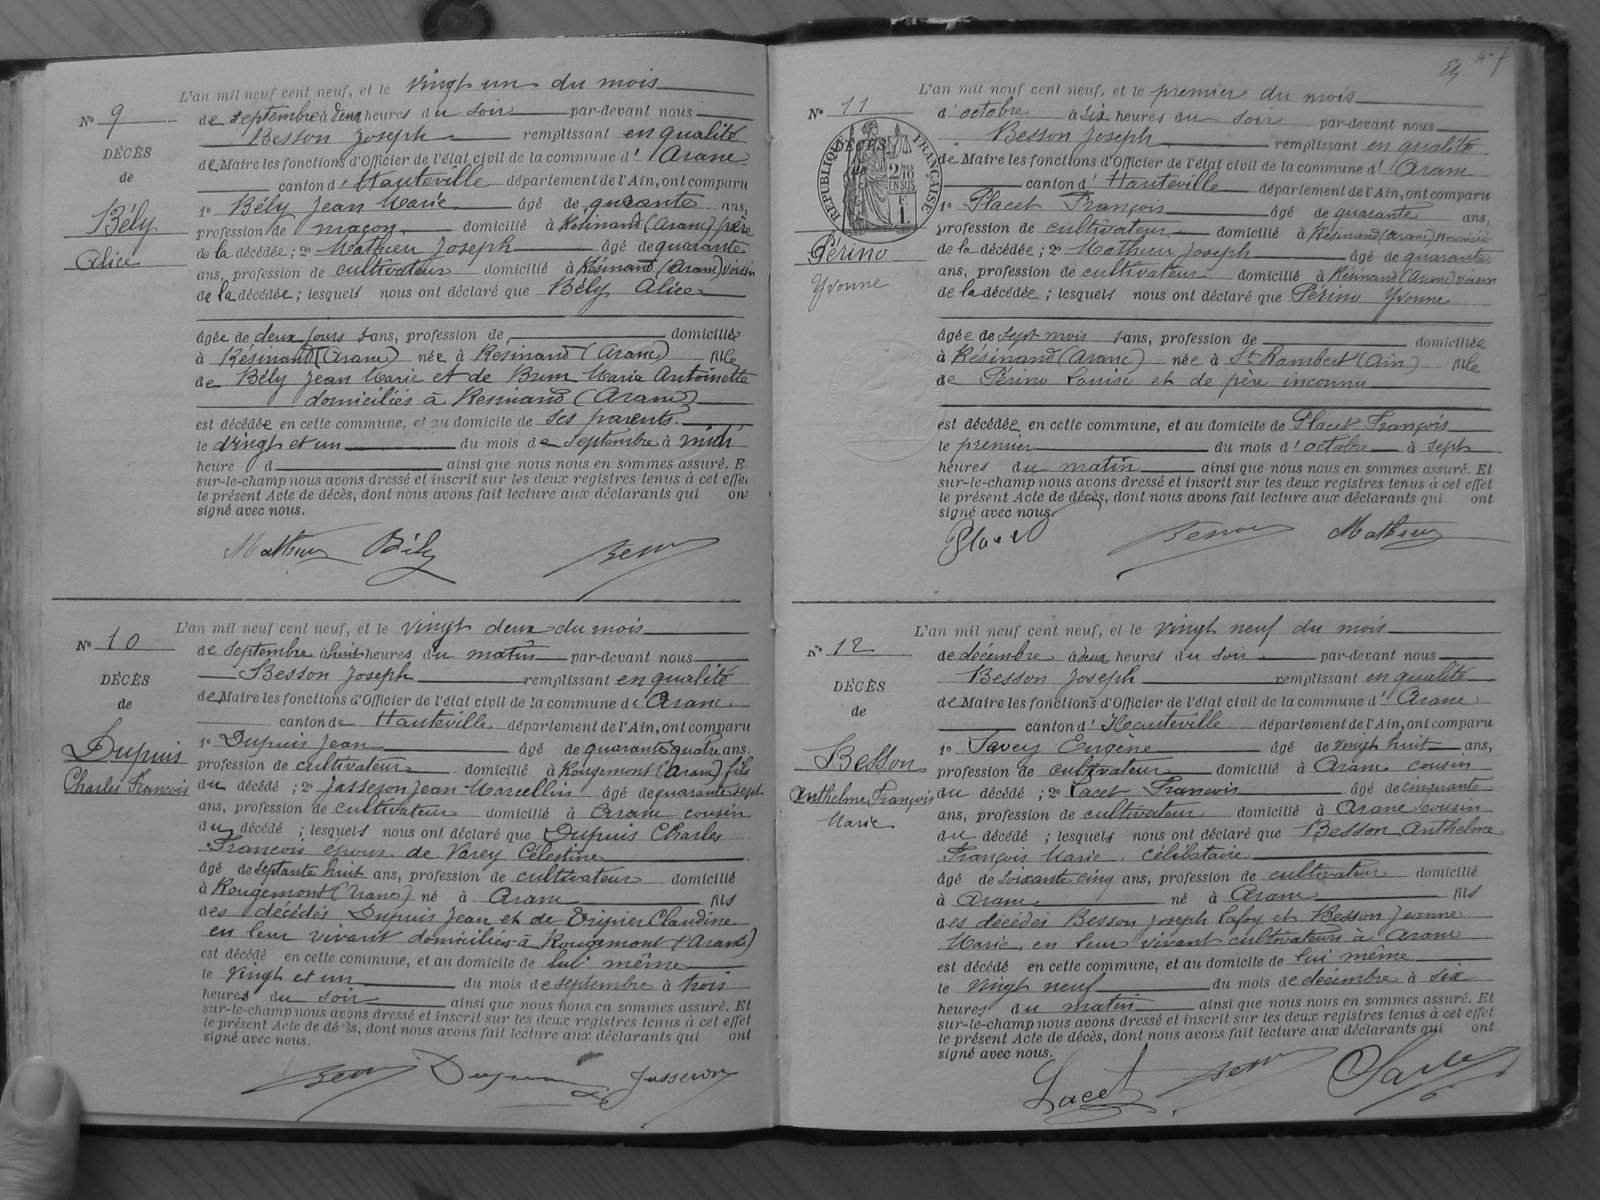 L'an mil neuf cent neuf, et le vingt un du mois
Nº 9
de septembre à deux heures du soir par-devant nous
Besson Joseph remplissant en qualité
DÉCÈS
de Maire les fonctions d'Officier de l'état civil de la commune d' Aranc
de
canton d' Hauteville département de l'Ain, ont comparu
Bély
Alice
1º Bély Jean Marie âgé de quarante ans,
profession de maçon domicilié à Résinand (Aranc) père
de la décédée ; 2º Mathieu Joseph âgé de quarante
ans, profession de cultivateur domicilié à Résinand (Aranc) voisin
de la décédée ; lesquels nous ont déclaré que Bély Alice
âgée de deux jours ans, profession de domiciliée
à Résinand (Aranc) née à Résinand (Aranc) fille
de Bély Jean Marie et de Brun Maria Antoinette
domiciliés à Résinand (Aranc)
est décédée en cette commune, et au domicile de ses parents.
le vingt et un du mois de septembre à midi
heure d ainsi que nous nous en sommes assuré. E
sur-le-champ nous avons dressé et inscrit sur les deux registres tenus à cet effe
le présent Acte de décès, dont nous avons fait lecture aux déclarants qui on
signé avec nous.
Mathieu Bély Besson
L'an mil neuf cent neuf, et le vingt deux du mois
Nº 10
de septembre à huit heures du matin par-devant nous
Besson Joseph remplissant en qualité
DÉCÈS
de Maire les fonctions d'Officier de l'état civil de la commune d' Aranc
de
canton de Hauteville département de l'Ain, ont comparu
Dupuis
Charles François
1º Dupuis Jean âgé de quarante quatre ans.
profession de cultivateur domicilié à Rougemont (Aranc) fils
du décédé ; 2º Jasseron Jean-Marcellin âgé de quarante sept
ans, profession de cultivateur domicilié à Aranc cousin
du décédé ; lesquels nous ont déclaré que Dupuis Charles
François époux de Varey Célestine
âgé de septante huit ans, profession de cultivateur domicilié
à Rougemont (Aranc) né à Aranc fils
des décédés Dupuis Jean et de Tripier Claudine
en leur vivant domiciliés à Rougemont (Aranc)
est décédé en cette commune, et au domicile de lui même
le vingt et un du mois de septembre à trois
heures du soir ainsi que nous nous en sommes assuré. Et
sur-le-champ nous avons dressé et inscrit sur les deux registres tenus à cet effet
le présent Acte de décès, dont nous avons fait lecture aux déclarants qui ont
signé avec nous.
Besson Dupuis Jasseron
L'an mil neuf cent neuf, et le premier du mois
Nº 11
d'octobre à six heures du soir par-devant nous
Besson Joseph remplissant en qualité
DÉCÈS
RÉPUBLIQUE FRANÇAISE
de Maire les fonctions d'Officier de l'état civil de la commune d' Aranc
canton d' Hauteville département de l'Ain, ont comparu
Périno
Yvonne
1º Placet François âgé de quarante ans,
profession de cultivateur domicilié à Résinand (Aranc)
de la décédée ; 2º Mathieu Joseph âgé de quarante
ans, profession de cultivateur domicilié à Résinand (Aranc) voisin
de la décédée ; lesquels nous ont déclaré que Périno Yvonne
âgée de sept mois ans, profession de domiciliée
à Résinand (Aranc) née à St Rambert (Ain) fille
de Périno Louise et de père inconnu
est décédée en cette commune, et au domicile de Placet François
le premier du mois d'octobre à sept
heures du matin ainsi que nous nous en sommes assuré. Et
sur-le-champ nous avons dressé et inscrit sur les deux registres tenus à cet effet
le présent Acte de décès, dont nous avons fait lecture aux déclarants qui ont
signé avec nous.
Placet Besson Mathieu
L'an mil neuf cent neuf, et le vingt neuf du mois
Nº 12
de décembre à deux heures du soir par-devant nous
Besson Joseph remplissant en qualité
DÉCÈS
de Maire les fonctions d'Officier de l'état civil de la commune d' Aranc
de
canton d' Hauteville département de l'Ain, ont comparu
Besson
Anthelme François
Marie
1º Savey Eugène âgé de vingt huit ans,
profession de cultivateur domicilié à Aranc cousin
du décédé ; 2º Lacet François âgé de cinquante
ans, profession de cultivateur domicilié à Aranc cousin
du décédé ; lesquels nous ont déclaré que Besson Anthelme
François Marie, célibataire
âgé de soixante cinq ans, profession de cultivateur domicilié
à Aranc né à Aranc fils
des décédés Besson Joseph Lafoy et Besson Jeanne
Marie, en leur vivant cultivateurs à Aranc
est décédé en cette commune, et au domicile de lui même
le vingt neuf du mois de décembre à six
heures du matin ainsi que nous nous en sommes assuré. Et
sur-le-champ nous avons dressé et inscrit sur les deux registres tenus à cet effet
le présent Acte de décès, dont nous avons fait lecture aux déclarants qui ont
signé avec nous.
Lacet Besson Savey